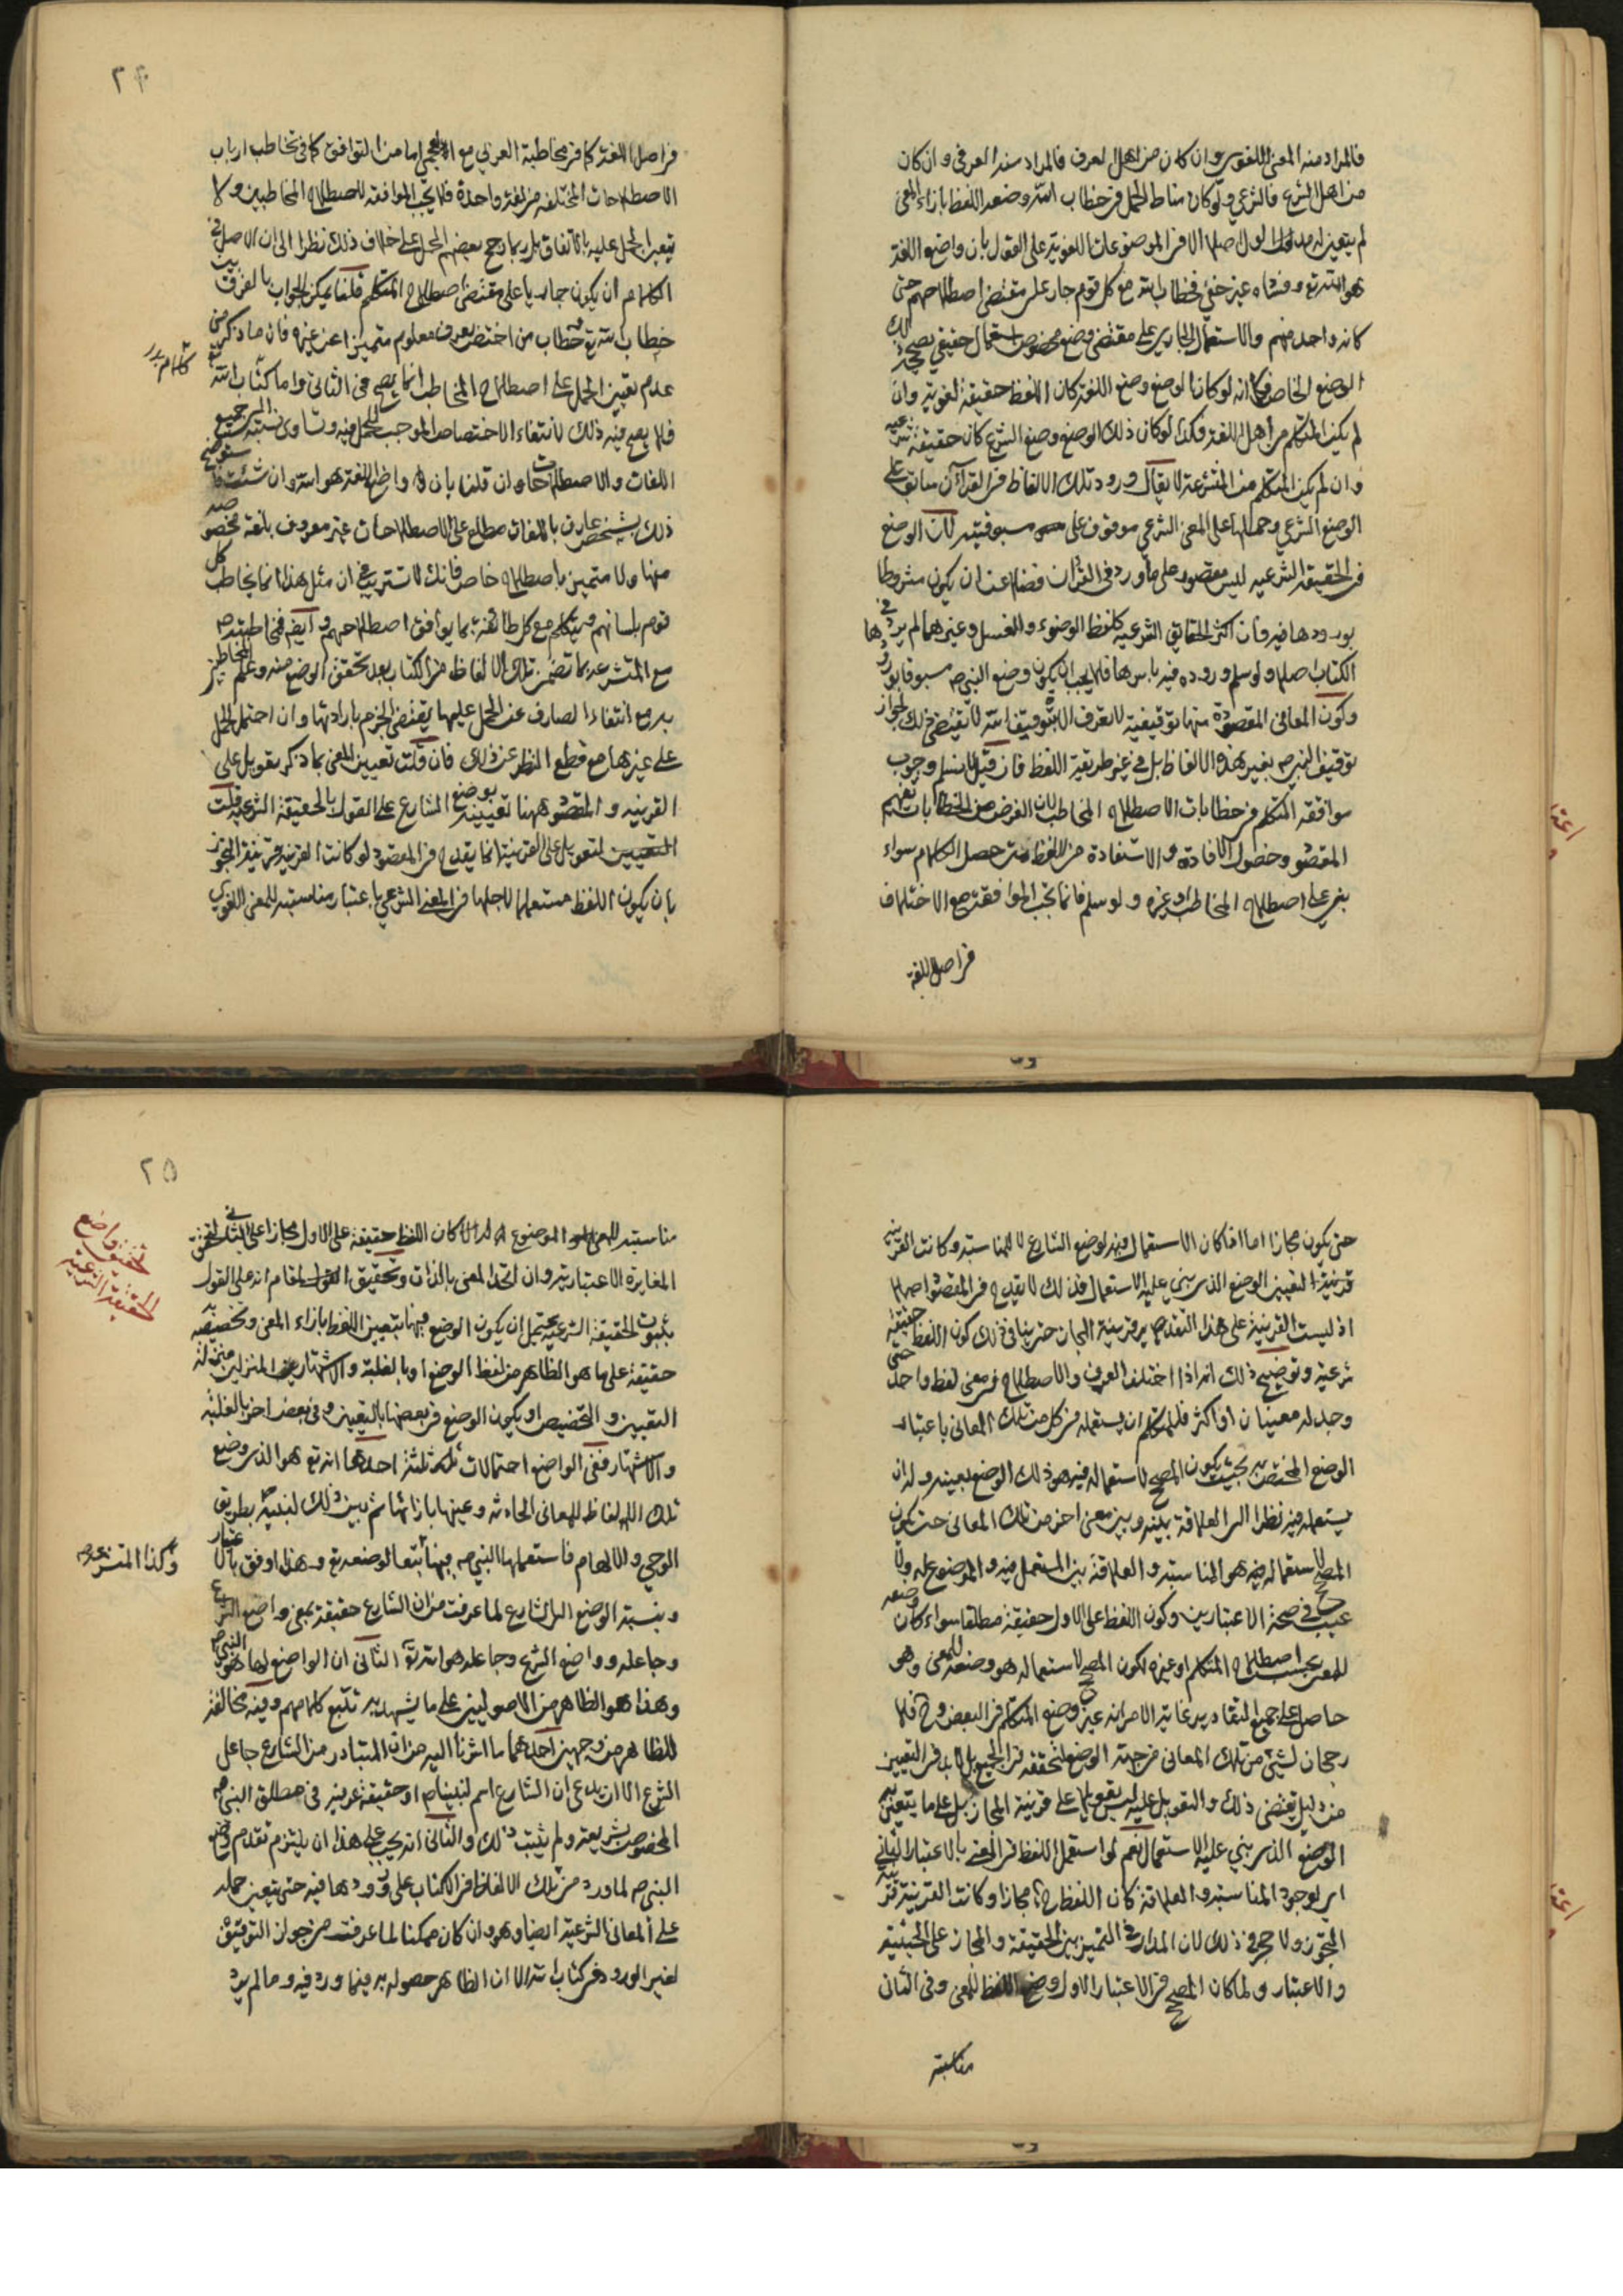 فالمراد منه المعنى اللغوي وان كان من اهل العرف فالمراد منه العرفي وان كان
من اهل الشرع فالشرعي ولو كان مناط الحمل في خطاب الله وضعه اللفظ بازاء المعنى
لم يتعين له مدلول اصلا الا في الموضوعات اللغوية على القول بان واضع اللغة
هو الله تع وفساده غير خفي فخطاب الله مع كل قوم جار على مقتضى اصطلاحهم حتى
كانه واحد منهم والاستعمال الجاري على مقتضى وضع مخصوص استعمال حقيقي يصححه ذلك
الوضع الخاص فكما انه لو كان الوضع وضع اللغة كان اللفظ حقيقة لغوية وان
لم يكن المتكلم من اهل اللغة فكذا لو كان ذلك الوضع وضع الشرع كان حقيقة شرعية
وان لم يكن المتكلم من المتشرعة لا يقال ورود تلك الالفاظ في القرآن سابق على
الوضع الشرعي وحملها على المعنى الشرعي موقوف على مسبوقيته لان الوضع
في الحقيقة الشرعية ليس مقصورا على ما ورد في القران فضلا عن ان يكون مشروطا
بورودها فيه وان اكثر الحقايق الشرعية كلفظ الوضوء والغسل وغيرهما لم يرد في
الكتاب اصلا ولو سلم وروده فيه باسرها فلا يجب ان يكون وضع النبي ص مسبوقا بورودها
وكون المعاني المقصودة منها توقيفية لا تعرف الا بتوقيف الله لا يقتضي ذلك لجواز
توقيف النبي ص بغير هذه الالفاظ بل في غير طريقة اللفظ فان قيل لا نسلم وجوب
موافقة المتكلم في خطابات الاصطلاح المخاطب لان الغرض من الخطابات تفهيم
المقصود وحصول الافادة والاستفادة من اللفظ متى حصل الكلام سواء
بني على اصطلاح المخاطب او غيره ولو سلم فانما تجب الموافقة مع الاختلاف
في اصل اللغة
٢۴
في اصل اللغة كما في مخاطبة العربي مع العجمي اما مع التوافق كما في تخاطب ارباب
الاصطلاحات المختلفة من لغة واحدة فلا يجب الموافقة لاصطلاح المخاطبين ولا
يتعين الحمل عليه بالاتفاق بل ربما رجح بعضهم الحمل على خلاف ذلك نظرا الى ان الاصل في
الكلام ان يكون جاريا على مقتضى اصطلاح المتكلم قلنا يمكن الجواب بالفرق بين
خطاب الله تع وخطاب من اختص بعرف معلوم متميزا عن غيره فان ما ذكر من
عدم تعيين الحمل على اصطلاح المخاطب انما يصح في الثاني واما كتاب الله
فلا يصح فيه ذلك لانتفاء الاختصاص الموجب للحمل فيه وتساوي نسبته الى جميع
اللغات والاصطلاحات وان قلنا بان واضع اللغة هو الله وان شئت فاستوضح
ذلك بشخص عارف باللغات مطلع على الاصطلاحات غير معروف بلغة مخصوصة
منها ولا متميز باصطلاح خاص فانك لا تستريب في ان مثل هذا انما يخاطب كل
قوم بلسانهم ويتكلم مع كل طائفة بما يوافق اصطلاحهم وايضا فمخاطبته
مع المتشرعة بما تضمن تلك الالفاظ من الكتاب بعد تحقق الوضع منه وعلم المخاطبين
به مع انتفاء الصارف عن الحمل عليها يقتضي الجزم بارادتها وان احتمل الحمل
على غيرها مع قطع النظر عن ذلك فان قلت تعيين المعنى بما ذكر تعويل على
القرينة والمقصود ههنا تعيينه بوضع الشارع على القول بالحقيقة الشرعية قلت
التعويل على القرينة انما يقدح في المقصود لو كانت القرينة قرينة التجوز
بان يكون اللفظ مستعملا لاجلها في المعنى الشرعي باعتبار مناسبته للمعنى اللغوي
حتى يكون مجازا اما اذا كان الاستعمال فيه لوضع الشارع لا للمناسبة وكانت القرينة
قرينة لتعيين الوضع الذي بني عليه الاستعمال فذلك لا يقدح في المقصود اصلا
اذ ليست القرينة على هذا التقدير قرينة المجاز حتى ينافي ذلك كون اللفظ حقيقة
شرعية وتوضيح ذلك انه اذا اختلف العرف والاصطلاح في معنى لفظ واحد حتى
وجد له معنيان او اكثر فللمتكلم ان يستعمله في كل من تلك المعاني باعتبار
الوضع المختص به بحيث يكون المصحح لاستعماله فيه هو ذلك الوضع بعينه وله ان
يستعمله فيه نظرا الى العلاقة بينه وبين معنى اخر من تلك المعاني حتى يكون
المصحح لاستعماله فيه هو المناسبة والعلاقة بين المستعمل فيه والموضوع له ولا
عيب في صحة الاعتبارين وكون اللفظ على الاول حقيقة مطلقا سواء كان وضعه
للمعنى بحسب اصطلاح المتكلم او غيره لكون المصحح لاستعماله هو وضعه للمعنى وهو
حاصل على جميع التقادير غاية الامر انه غير وضع المتكلم في البعض وح فلا
رجحان لشيء من تلك المعاني من جهة الوضع لتحققه في الجميع بل لا بد في التعيين
من دليل يقتضي ذلك والتعويل عليه ليس تعويلا على قرينة المجاز بل على ما يتعين به
الوضع الذي بني عليه الاستعمال نعم لو استعمل اللفظ في المعنى بالاعتبار الثاني
اي لوجود المناسبة والعلاقة كان اللفظ ح مجازا وكانت القرينة قرينة
التجوز ولا حجر في ذلك لان المدار في التميز بين الحقيقة والمجاز على الحيثية
والاعتبار ولما كان المصحح في الاعتبار الاول وضع اللفظ للمعنى وفي الثاني
مناسبته
٢۵
مناسبته للمعنى الموضوع له كان اللفظ حقيقة على الاول مجازا على الثاني لتحقق
المغايرة الاعتبارية وان اتحد المعنى بالذات وتحقيق المقام انه على القول
بثبوت الحقيقة الشرعية يحتمل ان يكون الوضع فيها بتعيين اللفظ بازاء المعنى وتخصيصه به
حقيقة على ما هو الظاهر من لفظ الوضع او بالغلبة والاشتهار المنزلين منزلة
التعيين والتخصيص او يكون الوضع في بعضها بالتعيين وفي بعض اخر بالغلبة
والاشتهار ففي الواضع احتمالات ثلثة احدها انه تع هو الذي وضع
تلك الالفاظ للمعاني الحادثة وعينها بازائها ثم بين ذلك لنبيه ص بطريق
الوحي والالهام فاستعملها النبي ص فيها تبعا لوضعه تع وهذا اوفق بالاعتبار
وبنسبة الوضع الى الشارع لما عرفت من ان الشارع حقيقة بمعنى واضع الشرع
وجاعله وواضع الشرع وجاعله هو الله تع الثاني ان الواضع لها هو النبي ص
وهذا هو الظاهر من الاصوليين على ما يشهد به تتبع كلامهم وفيه مخالفة
للظاهر من وجهين احدهما ما اشرنا اليه من ان المتبادر من الشارع جاعل
الشرع الا ان يدعى ان الشارع اسم لنبينا ص او حقيقة عرفية في مطلق النبي ص
المخصوص بشريعته ولم يثبت ذلك والثاني انه يجب على هذا ان يلتزم تقدم وضع
النبي ص لما ورد من تلك الالفاظ في الكتاب على ورودها فيه حتى يتعين حمله
على المعاني الشرعية ايضا وهو وان كان ممكنا لما عرفت من جواز التوقيف
لغير الورود في كتاب الله الا ان الظاهر حصوله به فيما ورد فيه وما لم يرد
تحقيق واضع
الحقيقة الشرعية
وكذا المتشرعة